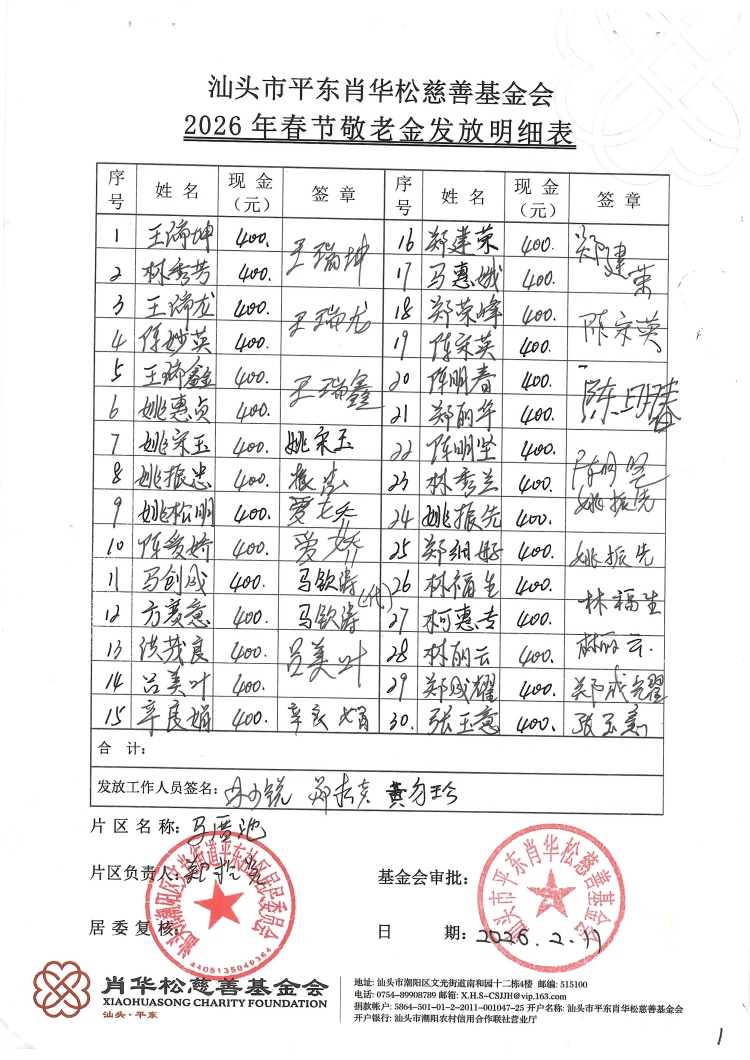 汕头市平东肖华松慈善基金会
2026年春节敬老金发放明细表
序号 姓名 现金（元） 签章 序号 姓名 现金（元） 签章
1 王瑞坤 400. 王瑞坤 16 郑建荣 400. 郑建荣
2 林秀芳 400. 17 马惠娥 400.
3 王瑞龙 400. 王瑞龙 18 郑荣峰 400.
4 陈妙英 400. 19 陈宋英 400. 陈宋英
5 王瑞鑫 400. 王瑞鑫 20 陈明春 400. 陈明春
6 姚惠贞 400. 21 郑丽华 400.
7 姚宋玉 400. 姚宋玉 22 陈明坚 400. 陈明坚
8 姚振忠 400. 23 林秀兰 400. 姚振先
9 姚松明 400. 24 姚振先 400.
10 陈爱娇 400. 爱娇 25 郑细 400. 姚振先
11 马创成 400. 马钦涛(代) 26 林福生 400. 林福生
12 方赛意 400. 马钦涛 27 柯惠专 400.
13 洪茂良 400. 吕美叶 28 林丽云 400. 林丽云.
14 吕美叶 400. 29 郑成耀 400. 郑成耀
15 辛良娟 400. 辛良娟 30. 张玉意 400. 张玉意
合 计：
发放工作人员签名：
片区名称：
片区负责人：
基金会审批：
居委复核：
日 期：2026.2.11
汕头市潮阳区文光街道平东社区居民委员会
4405135040364
汕头市平东肖华松慈善基金会
肖华松慈善基金会
XIAOHUASONG CHARITY FOUNDATION
汕头·平东
地址: 汕头市潮阳区文光街道南和园十二栋4楼 邮编: 515100
电话: 0754-89908789 邮箱: X.H.S-CSJJH@vip.163.com
捐款帐户: 5864-501-01-2-2011-001047-25 开户名称: 汕头市平东肖华松慈善基金会
开户银行: 汕头市潮阳农村信用合作联社营业厅
1